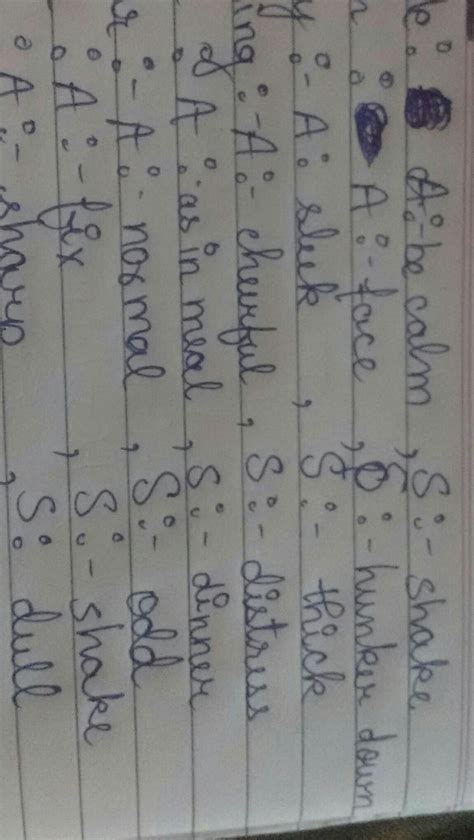 le :- A:- be calm , S :- shake
n :- A :- face , S :- hunker down
y :- A: sleek , S :- thick
ing :- A:- cheerful , S :- distress
of A : as in meal , S :- dinner
r :- A :- normal , S :- odd
: A :- fix , S :- shake
: A :- sharp , S : dull